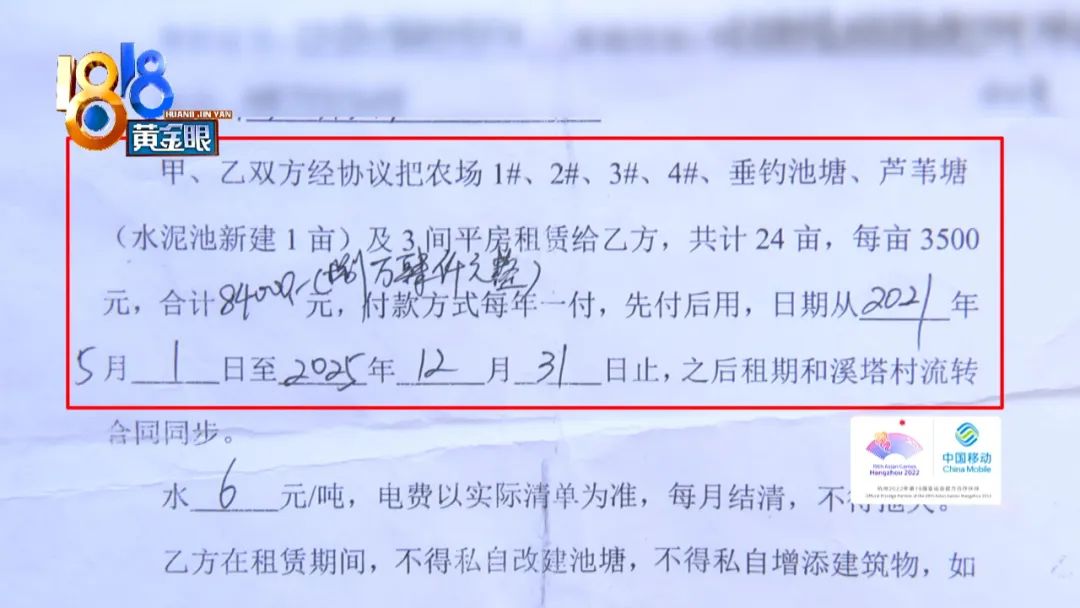 1818
HUANG JIN YAN
黄金眼
甲、乙双方经协议把农场 1#、2#、3#、4#、垂钓池塘、芦苇塘
（水泥池新建 1 亩）及 3 间平房租赁给乙方，共计 24 亩，每亩 3500
元，合计 84000 （捌万肆仟元整） 元，付款方式每年一付，先付后用，日期从 2021 年
5 月 1 日至 2025 年 12 月 31 日止，之后租期和溪塔村流转
合同同步。
19th Asian Games
Hangzhou 2022
中国移动
China Mobile
杭州2022年第19届亚运会官方合作伙伴
Official Prestige Partner of the 19th Asian Games Hangzhou 2022
水 6 元/吨，电费以实际清单为准，每月结清，不得拖欠。
乙方在租赁期间，不得私自改建池塘，不得私自增添建筑物，如